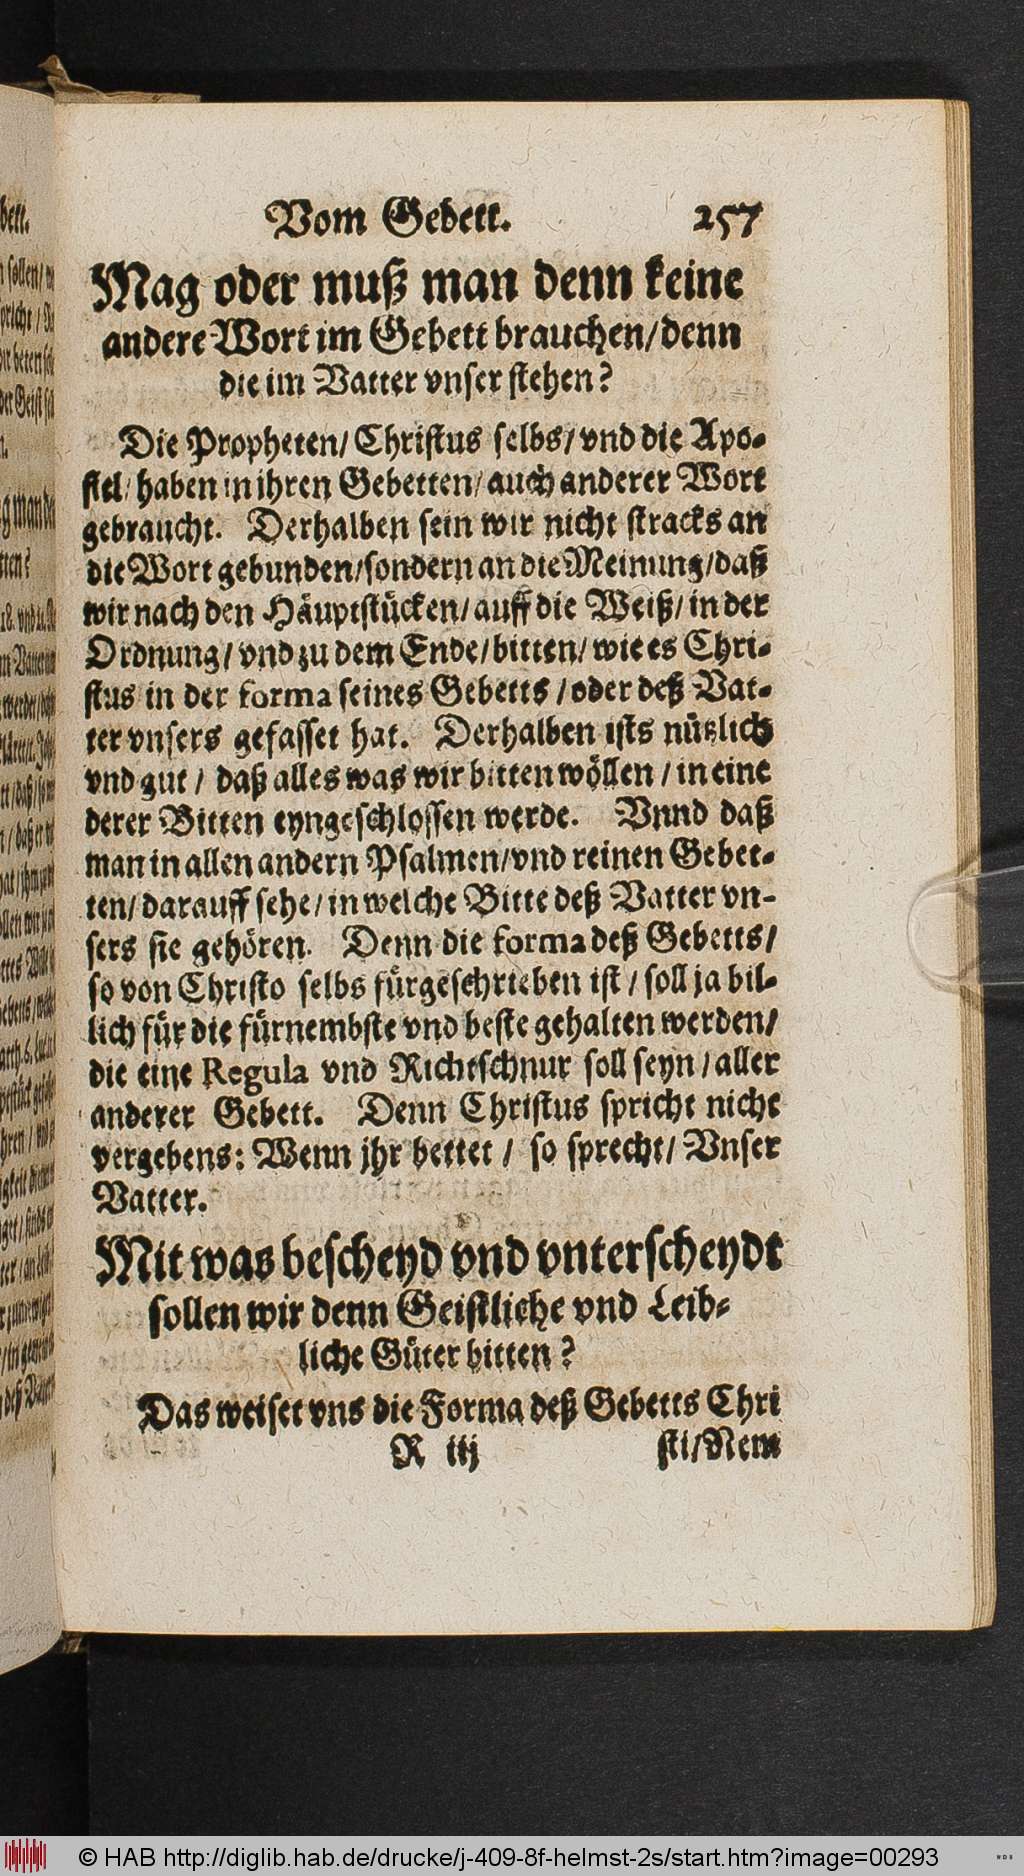 Vom Gebett. 257
Mag oder muß man denn keine
andere Wort im Gebett brauchen/denn
die im Vatter vnser stehen?
Die Propheten/ Christus selbs/ vnd die Apo-
stel/ haben in ihren Gebetten/ auch anderer Wort
gebraucht. Derhalben sein wir nicht stracks an
die Wort gebunden/sondern an die Meinung/daß
wir nach den Häuptstücken/ auff die Weiß/ in der
Ordnung/ vnd zu dem Ende/bitten/ wie es Chri-
stus in der forma seines Gebetts / oder deß Vat-
ter vnsers gefasset hat. Derhalben ists nützlich
vnd gut / daß alles was wir bitten wöllen / in eine
derer Bitten eyngeschlossen werde. Vnnd daß
man in allen andern Psalmen/vnd reinen Gebet-
ten/ darauff sehe/ in welche Bitte deß Vatter vn-
sers sie gehören. Denn die forma deß Gebetts/
so von Christo selbs fürgeschrieben ist / soll ja bil-
lich für die fürnembste vnd beste gehalten werden/
die eine Regula vnd Richtschnur soll seyn / aller
anderer Gebett. Denn Christus spricht nicht
vergebens: Wenn jhr bettet / so sprecht/ Vnser
Vatter.
Mit was bescheyd vnd vnterscheydt
sollen wir denn Geistliche vnd Leib-
liche Güter bitten?
Das weiset vns die Forma deß Gebetts Chri
R iij sti/Nem
© HAB http://diglib.hab.de/drucke/j-409-8f-helmst-2s/start.htm?image=00293